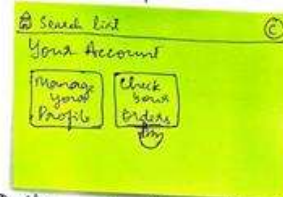 Search list
C
Your Account
Manage
your
Profile
Check
your
Orders